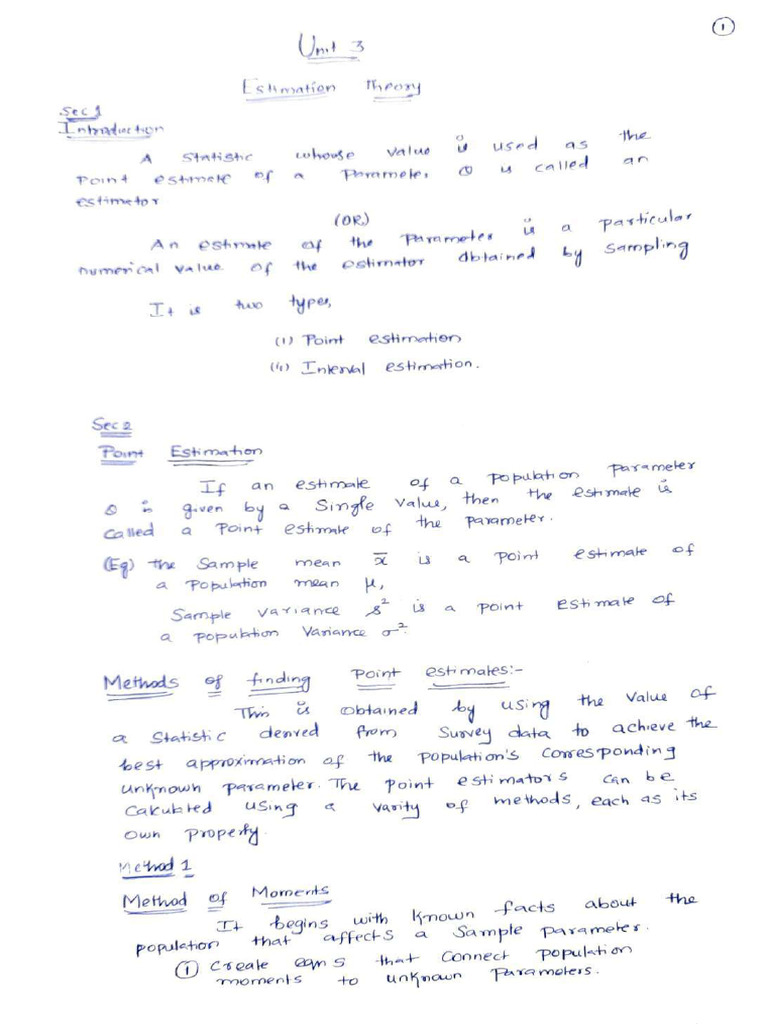 1
Unit 3
Estimation Theory
Sec 1
Introduction
A Statistic whouse value is used as the
Point estimate of a Parameter θ is called an
estimator
(OR)
An estimate of the Parameter is a particular
numerical value of the estimator obtained by sampling
It is two types,
(i) Point estimation
(ii) Interval estimation.
Sec 2
Point Estimation
If an estimate of a population parameter
θ is given by a Single value, then the estimate is
called a Point estimate of the parameter.
(Eg) the Sample mean x̅ is a point estimate of
a population mean μ,
Sample variance s² is a point estimate of
a population variance σ².
Methods of finding Point estimates:-
This is obtained by using the value of
a Statistic derived from Survey data to achieve the
best approximation of the population's corresponding
unknown parameter. The point estimators can be
Calculated using a varity of methods, each as its
own property.
Method 1
Method of Moments
It begins with known facts about the
population that affects a Sample parameter.
① Create eqns that Connect population
moments to unknown Parameters.